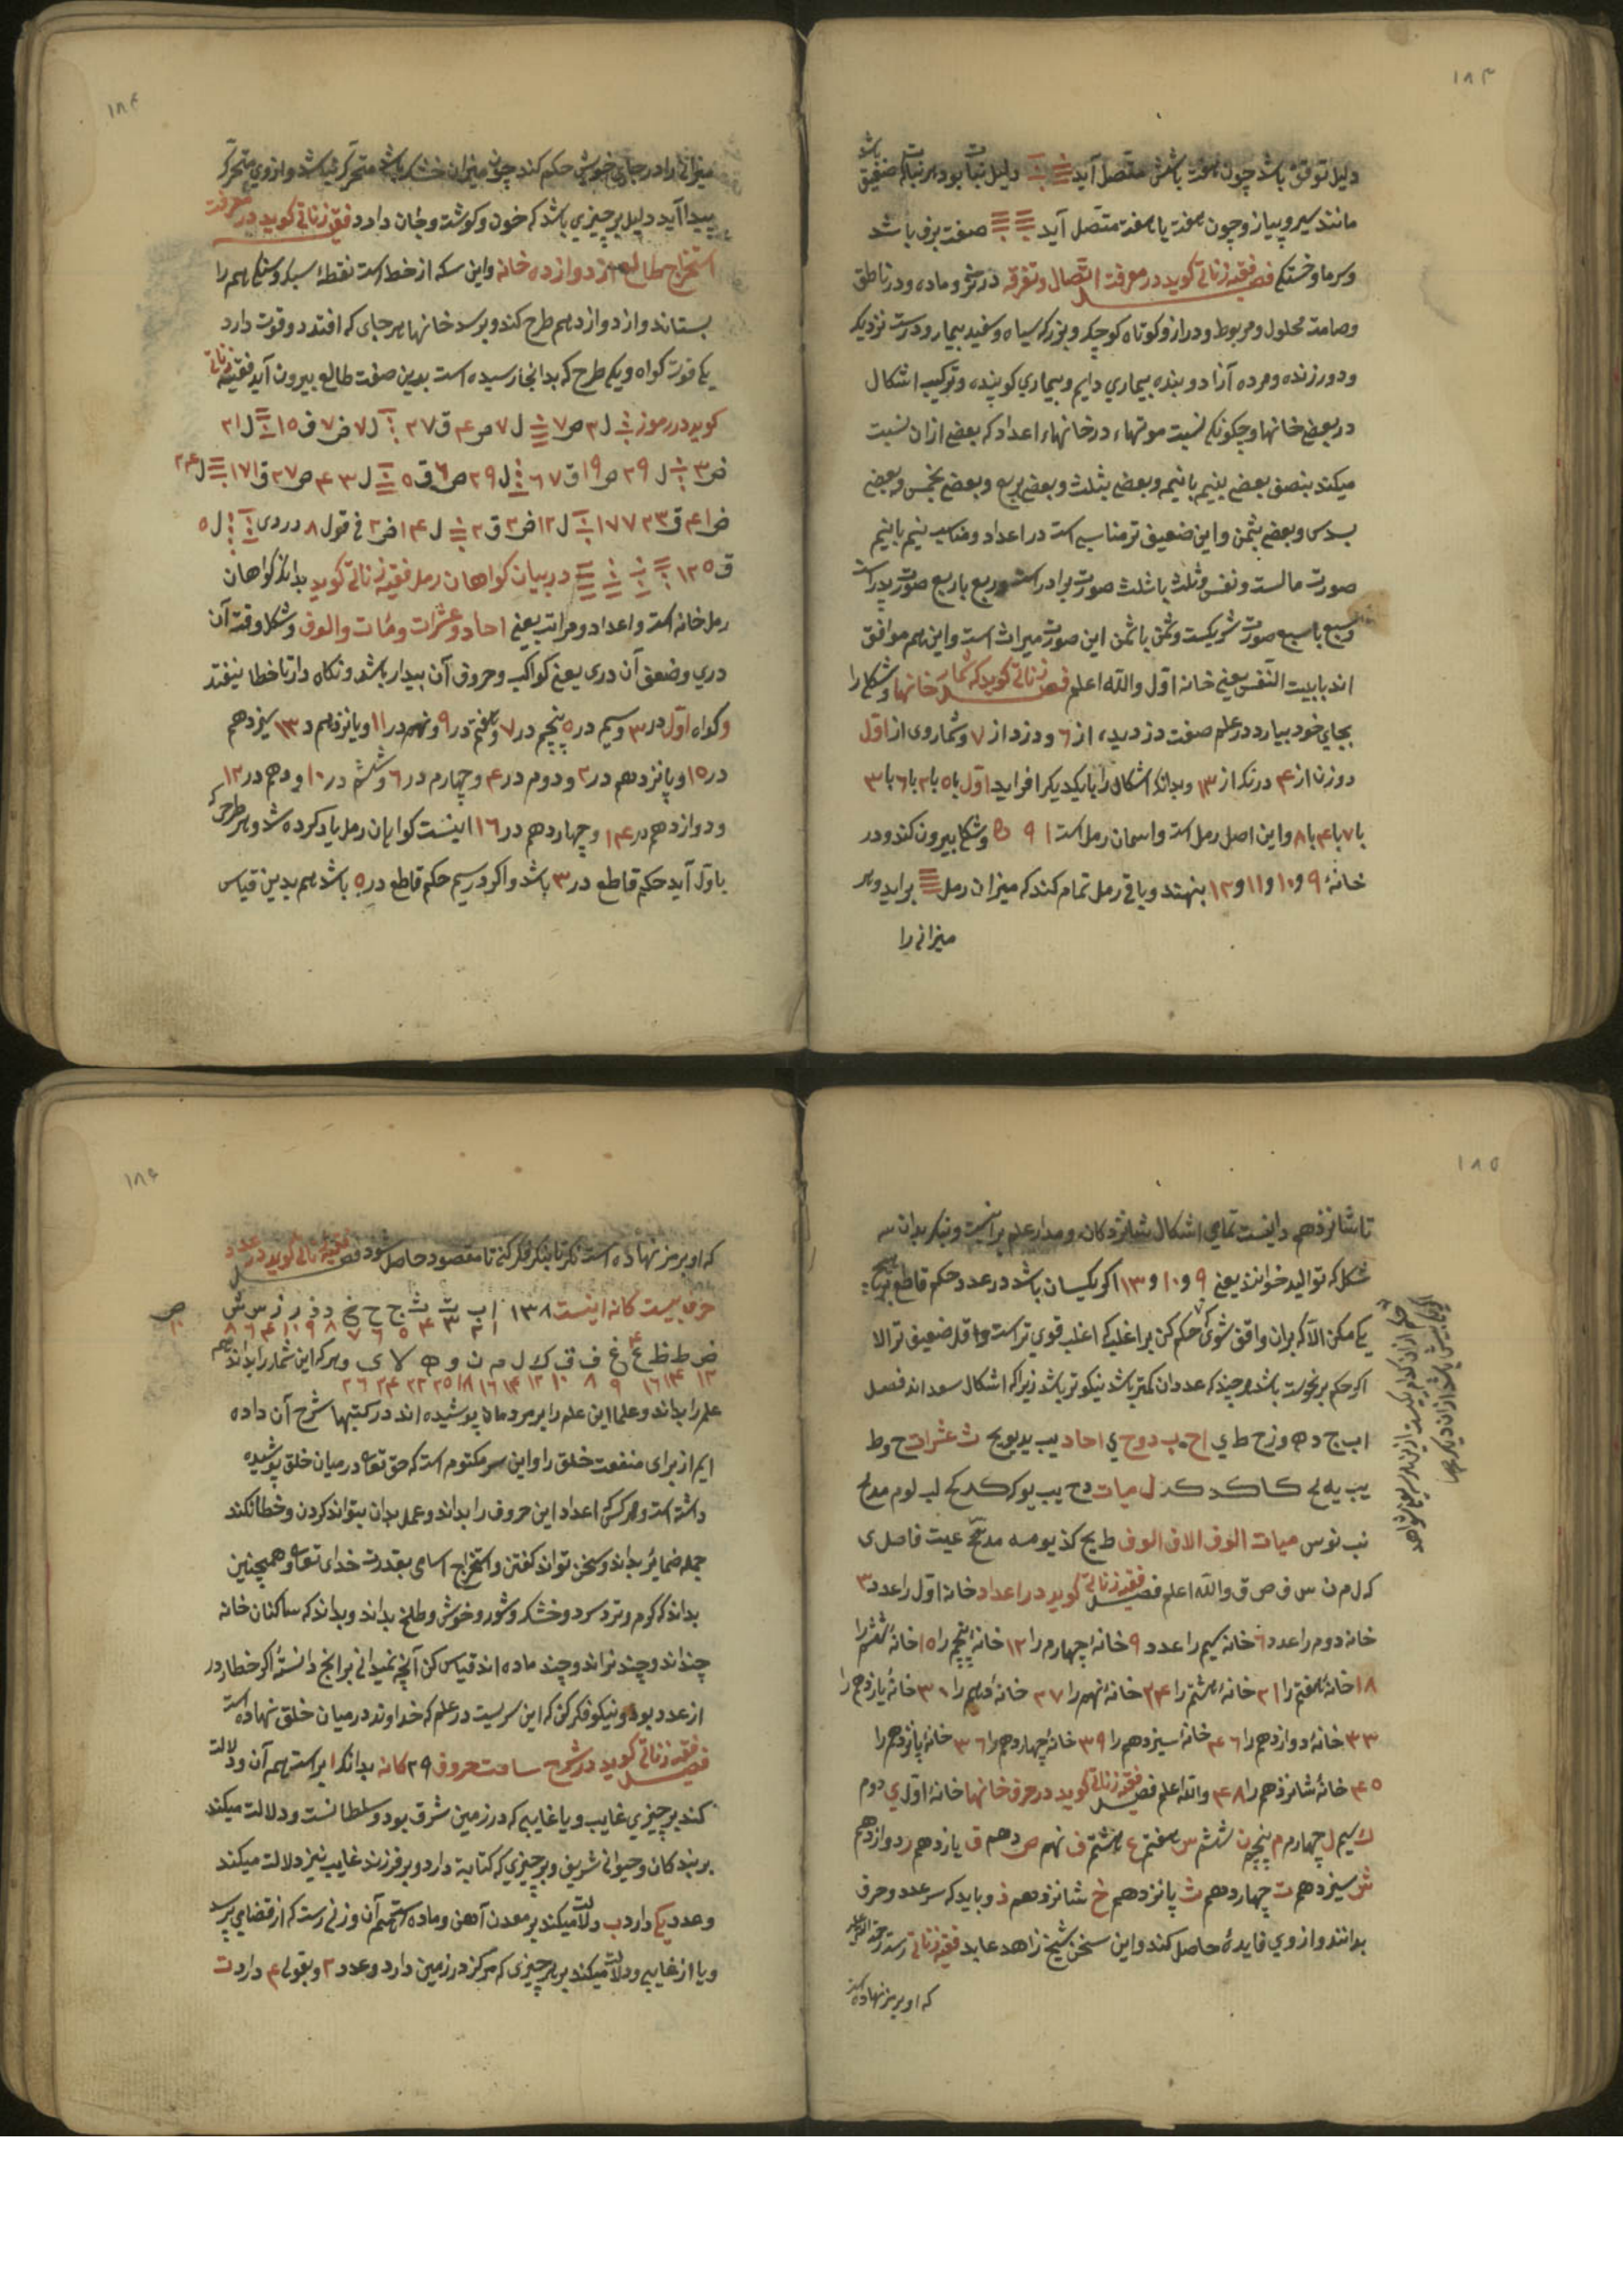 ١٨٣
دلیل توقف باشد چون هفت باشش متصل آید دلیل نبات بود هر نباتی که ضعیف باشد
مانند سیر و پیاز و چون هفت با هفت متصل آید صفت برف باشد
و سرما و خستکی فصل فقیه زناتی کوید در معرفت اتصال و تفرقه در نر و ماده و در ناطق
و صامت محلول و مربوط و دراز و کوتاه کوچک و بزرک سیاه و سفید بیمار و درست نزدیک
و دور زنده و مرده آزاد و بنده بیماری دایم و بیماری کوینده و ترکیب اشکال
در بعضی خانها و چکونکی نسبت موتهاء در خانهاء اعداد که بعضی از آن نسبت
میکند بنصف بعضی بنیم با نیم و بعضی بثلث و بعضی بربع و بعضی بخمس و بعضی
بسدس و بعضی بثمن و این ضعیف تر مناسبی است در اعداد و مناسب نیم با نیم
صورت مالست و نفس و ثلث با ثلث صورت برادر است و ربع با ربع صورت پدر است
و سبع با سبع صورت شریکست و ثمن با ثمن این صورت میراث است و این هم موافق
اند با بیت النفس یعنی خانه اول والله اعلم فصل زناتی کوید که شمار خانها و شکل را
بجای خود بیارد در علم صفت دزدیده از ٦ و دزد از ٧ و شمار وی از اول
دو زن از ۴ درنک از ١٣ و بدانکه اشکال را با یکدیکر افراید اول با ٥ با ٢ با ٦ با ٣
با ٧ با ۴ با ٨ و این اصل رمل است و اسمان رمل است ١ ٩ و شکل بیرون کند و در
خانهٔ ٩ و ١٠ و ١١ و ١٢ بنهند و باقی رمل تمام کند که میزان رمل براید و هر
میزانی را
١٨۴
میزانی را در جای خویش حکم کند چون میزان خشک باشد متحرک نباشد و از وی متحرک
پیدا آید دلیل بر چیزی باشد که خون و کوشت و جان دارد فقیه زناتی کوید در معرفت
استخراج طالع از دوازده خانه و این سکه از خط است نقطهٔ سبک و سنکی هم را
بستاند و از دوازدهم طرح کند و برسد خانها هر جای که افتد دو قوت دارد
یکی قوت کواه و یکی طرح که بدانجا رسیده است بدین صفت طالع بیرون آید فقیه زناتی
کوید در رموز ل ٣ ص ٧ ل ٧ ص ۴ ق ٢٧ ل ٧ ض ٧ ف ١٥ ل ٢١
ض ٣ ل ٢٩ ص ١٩ ق ٦٧ ل ٢٩ ص ٦ ق ٥ ل ٣ ۴ ص ٢٧ ق ١٧١ ل ٢۴
ض ۴١ ق ٢٣ ١٧٧ ل ١٢ ض ٣ ق ٢ ل ١۴ ض ٢ فی قول ٨ در دی ل ٥
ق ١٢٥ در بیان کواهان رمل فقیه زناتی کوید بدانکه کواهان
رمل خانه است و اعداد و مراتب یعنی احاد و عشرات و مٔات و الوف و شکل و قته آن
دری و ضعف آن دری یعنی کواکب و حروف آن بیدار باشد و نکاه دار تا خطا نیفتد
و کواه اول در ٣ و سیم در ٥ پنجم در ٧ و هفتم در ٩ و نهم در ١١ و یازدهم در ١٣ سیزدهم
در ١٥ و پانزدهم در ٢ و دوم در ۴ و چهارم در ٦ و ششم در ١٠ و دهم در ١٢
و دوازدهم در ١۴ و چهاردهم در ١٦ اینست کواهان رمل یاد کرده شد و هر طرحی که
باول آید حکم قاطع در ٣ باشد و اکر در سیم حکم قاطع در ٥ باشد هم بدین قیاس
١٨٥
تا شانزدهم و اینست تمامی اشکال شانزدکانه و مدار علم بر اینست و بنکر بدان سه
شکل که توالید خوانند یعنی ٩ و ١٠ و ١٣ اکر یکسان باشد در عدد حکم قاطع بر هیچ
یکی مکن الا که بران واقف شوی حکم کن بر اغلب که اغلب قوی تر است و اقل ضعیف تر الا
اکر حکم بر نحوست باشد هر چند که عدد آن کمتر باشد نیکوتر باشد زیرا که اشکال سعد اند فصل
ا ب ج د ه و ز ح ط ی اح ب د و ح ی احاد یب ید یو یح ث عشرات ح و ط
یب یه لح کا کد کد ل میات دح یب یو ک کد کح لب لو م مد مح
نب نو س میات الوف الاف الوف ط یح کذ یو مه مد عج عیت فاصل ی
ک ل م ن س ف ص ق والله اعلم فصل فقیه زناتی کوید در اعداد خانه اول را عدد ٣
خانه دوم را عدد ٦ خانه سیم را عدد ٩ خانهٔ چهارم را ١٢ خانهٔ پنجم را ١٥ خانهٔ ششم را
١٨ خانهٔ هفتم را ٢١ خانهٔ هشتم را ٢۴ خانهٔ نهم را ٢٧ خانهٔ دهم را ٣٠ خانهٔ یازدهم را
٣٣ خانهٔ دوازدهم را ٣٦ خانهٔ سیزدهم را ٣٩ خانهٔ چهاردهم را ٣٦ خانهٔ پانزدهم را
۴٥ خانهٔ شانزدهم را ۴٨ والله اعلم فصل فقیه زناتی کوید در حرف خانها خانهٔ اول ی دوم
ک سیم ل چهارم م پنجم ن ششم س هفتم ع هشتم ف نهم ص دهم ق یازدهم ر دوازدهم
ش سیزدهم ت چهاردهم ث پانزدهم خ شانزدهم ذ و باید که سر عدد و حرف
بدانند و از وی فایدهٔ حاصل کند و این سخن شیخ زاهد عابد فقیه زناتی رحمة الله علیه
که او برمز نهاده است
١٨٦
که او برمز نهاده است نکر تا نیکو فکر کنی تا مقصود حاصل شود فصل فقیه زناتی کوید در عدد
حرف بیست کانه اینست ١٣٨ ا ب ت ث ج ح خ د ذ ر ز س ش ص
١ ٢ ٣ ۴ ٥ ٦ ٧ ٨ ٩ ١٠ ۴ ٦ ٨ ١٠
ض ط ظ ع غ ف ق ک ل م ن و ه لا ی و هر که این شمار را بداند همه
١٢ ١۴ ١٦ ٩ ٨ ١٠ ١٢ ١۴ ١٦ ١٨ ٢٥ ٢٢ ٢۴ ٢٦
علم را بداند و علما این علم را بر مردمان پوشیده اند در کتبها شرح آن داده
ایم از برای منفعت خلق را و این سر مکتوم است که حق تعالی در میان خلق پوشیده
داشته است و هر کس که اعداد این حروف را بداند و عمل بدان بتواند کردن و خطا نکند
جمله ضمایر بداند و سخن تواند کفتن و استخراج اسامی بقدرت خدای تعالی و همچنین
بداند که کرم و تر و سرد و خشک و شور و خوش و طلخ بداند و بداند که ساکنان خانه
چنداند و چند نراند و چند ماده اند قیاس کن آنچه نمیدانی بر انچ دانستهٔ اکر خطا در
از عدد بود و نیکو فکر کن که این سریست در علم که خداوند در میان خلق نهاده است
فصل فقیه زناتی کوید در شرح ساعت حروف ٢٩ کانه بدانکه ا براست هم آن و دلالت
کند بر چیزی غایب و یا غایبی که در زمین شرق بود و سلطانست و دلالت میکند
بر بندکان و حیوانی شریف و بر چیزی که کتابة دارد و بر فرزند غایب نیز دلالت میکند
و عدد یکی دارد ب دلالت میکند بر معدن آهن و ماده است هم آن و زنی رست که از قضای پرسد
و یا از غایبی و دلالت میکند بر هر چیزی که مرکز در زمین دارد و عدد ٢ و بقولی ۴ دارد ت